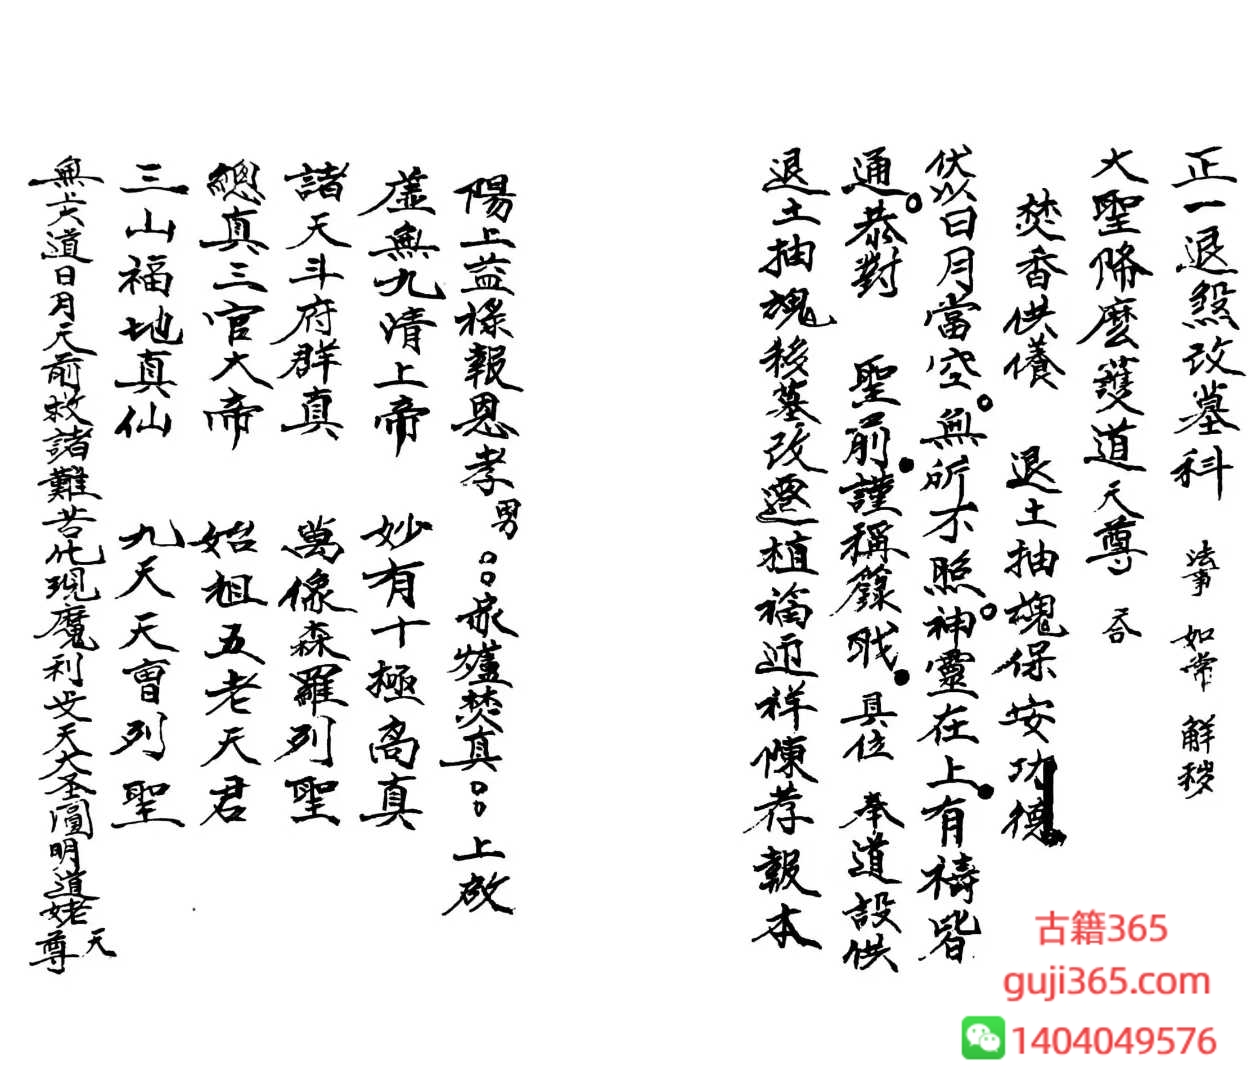 正一退煞改墓科 法事 如常 解穢
大聖降魔護道天尊 㕣
焚香供養 退土抽魂保安功德
伏以日月當空無所不照神靈在上有禱皆
通恭對 聖前謹稱籙職具位 奉道設供
退土抽魂移墓改遷植福迎祥陳荐報本
陽上益祿報恩孝男 家爐焚真 上啟
虛無九清上帝 妙有十極高真
諸天斗府群真 萬像森羅列聖
總真三官大帝 始祖五老天君
三山福地真仙 九天天曹列聖
無上大道日月天前救諸難苦化現魔利支天大圣圓明道姥天尊
古籍365
guji365.com
1404049576